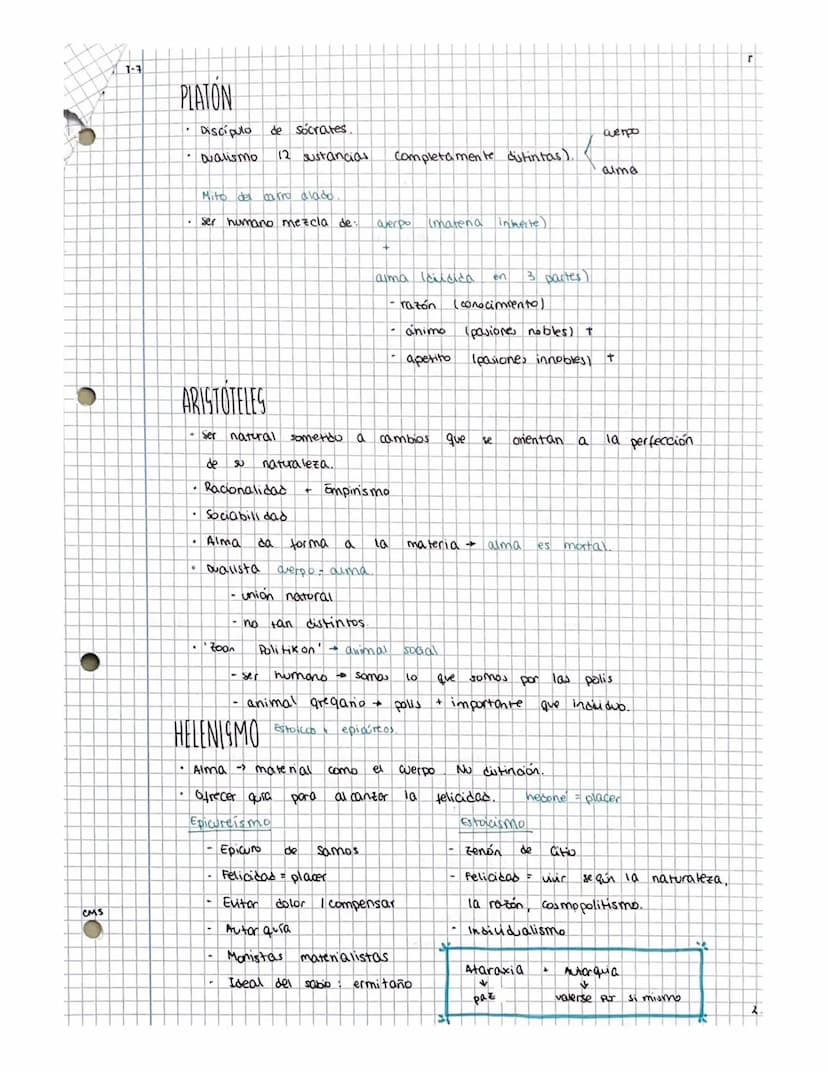 T-7
PLATÓN
· Discípulo de Sócrates.
· Dualismo (2 sustancias completamente distintas).
cuerpo
alma
Mito del carro alado.
· ser humano mezcla de: cuerpo (materia inherte)
+
alma (dividida en 3 partes)
- razón (conocimiento)
- ánimo (pasiones nobles) †
- apetito (pasiones innobles) †
ARISTÓTELES
· ser natural sometido a cambios que se orientan a la perfección
de su naturaleza.
· Racionalidad + Empirismo
· Sociabilidad
· Alma da forma a la materia → alma es mortal.
· Dualista cuerpo - alma
- unión natural
- no tan distintos.
· 'Zoon Politikon' → animal social
- ser humano → somos lo que somos por las polis
- animal gregario → polis + importante que individuo.
HELENISMO Estoicos y epicúreos.
· Alma -> material como el cuerpo. No distinción.
· Ofrecer guía para alcanzar la felicidad. hedoné = placer
Epicureísmo
- Epicuro de Samos
- Felicidad = placer
- Evitar dolor / compensar
- Autarquía
- Monistas materialistas
- Ideal del sabio: ermitaño
Estoicismo
- Zenón de Citio
- Felicidad = vivir según la naturaleza,
la razón, cosmopolitismo.
- Individualismo
Ataraxia + Autarquía
↓ ↓
paz valerse por si mismo
CMS
2